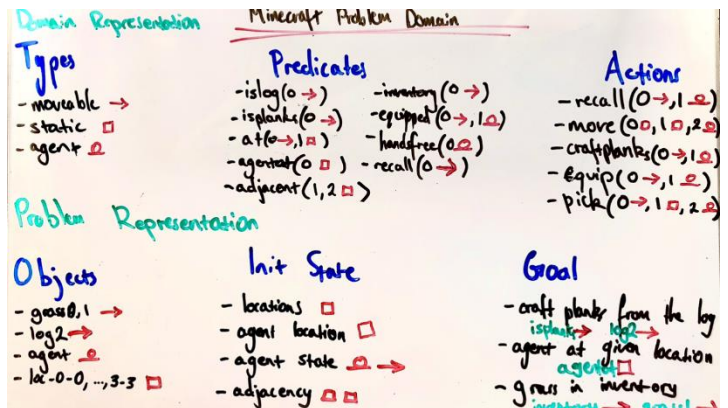 Domain Representation
Minecraft Problem Domain
Types
- moveable →
- static □
- agent
Predicates
- islog(0 →)
- isplanks(0 →)
- at(0→, 1 □)
- agentat(0 □)
- adjacent(1, 2 □)
- inventory(0 →)
- equipped(0 →, 1 )
- handsfree(0 )
- recall(0 →)
Actions
- recall(0 →, 1 )
- move(0□, 1□, 2 )
- craftplanks(0→, 1 )
- Equip(0→, 1 )
- pick(0→, 1□, 2 )
Problem Representation
Objects
- grass0,1 →
- log2 →
- agent
- loc-0-0, ..., 3-3 □
Init State
- locations □
- agent location □
- agent state →
- adjacency □ □
Goal
- craft planks from the log
isplanks→ log2→
- agent at given location
agentat□
- grass in inventory
inventory →